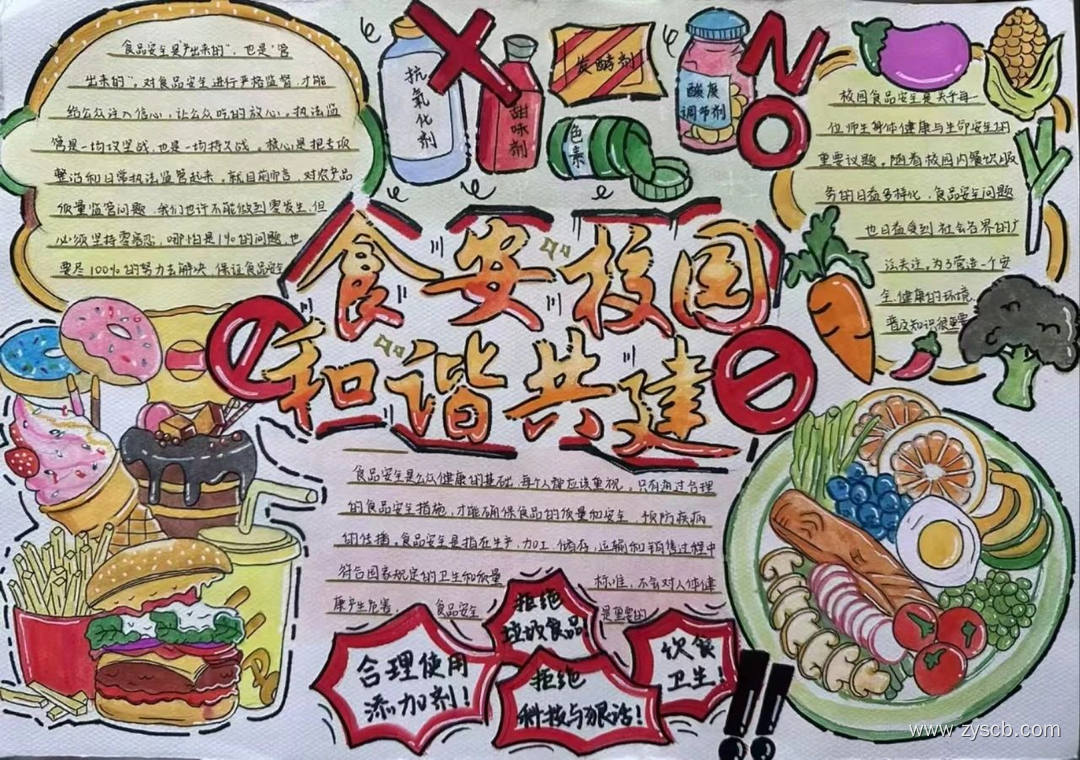 食品安全是"产出来的"，也是"管
出来的"，对食品安全进行严格监督，才能
给公众注入信心，让公众吃的放心。执法监
管是一场攻坚战，也是一场持久战。核心是把专项
整治和日常执法监管起来，就目前而言，对农产品
质量监管问题，我们也许不能做到零发生，但
必须坚持零容忍，哪怕是1%的问题，也
要尽100%的努力去解决，保证食品安全
抗氧化剂
甜味剂
发酵剂
色素
酸度
调节剂
NO
校园食品安全是关乎每一
位师生身体健康与生命安全的
重要议题，随着校园内餐饮服
务的日益多样化，食品安全问题
也日益受到社会各界的广
泛关注，为了营造一个安
全、健康的环境，
普及知识很重要
食安校园
和谐共建
食品安全是公众健康的基础，每个人都应该重视，只有通过合理
的食品安全措施，才能确保食品的质量和安全，预防疾病
的传播。食品安全是指在生产、加工、储存、运输和销售过程中
符合国家规定的卫生和质量标准，不会对人体健
康产生危害，食品安全是重要的
合理使用
添加剂！
拒绝
垃圾食品
拒绝
科技与狠活！
饮食
卫生！
!!
www.zyscb.com